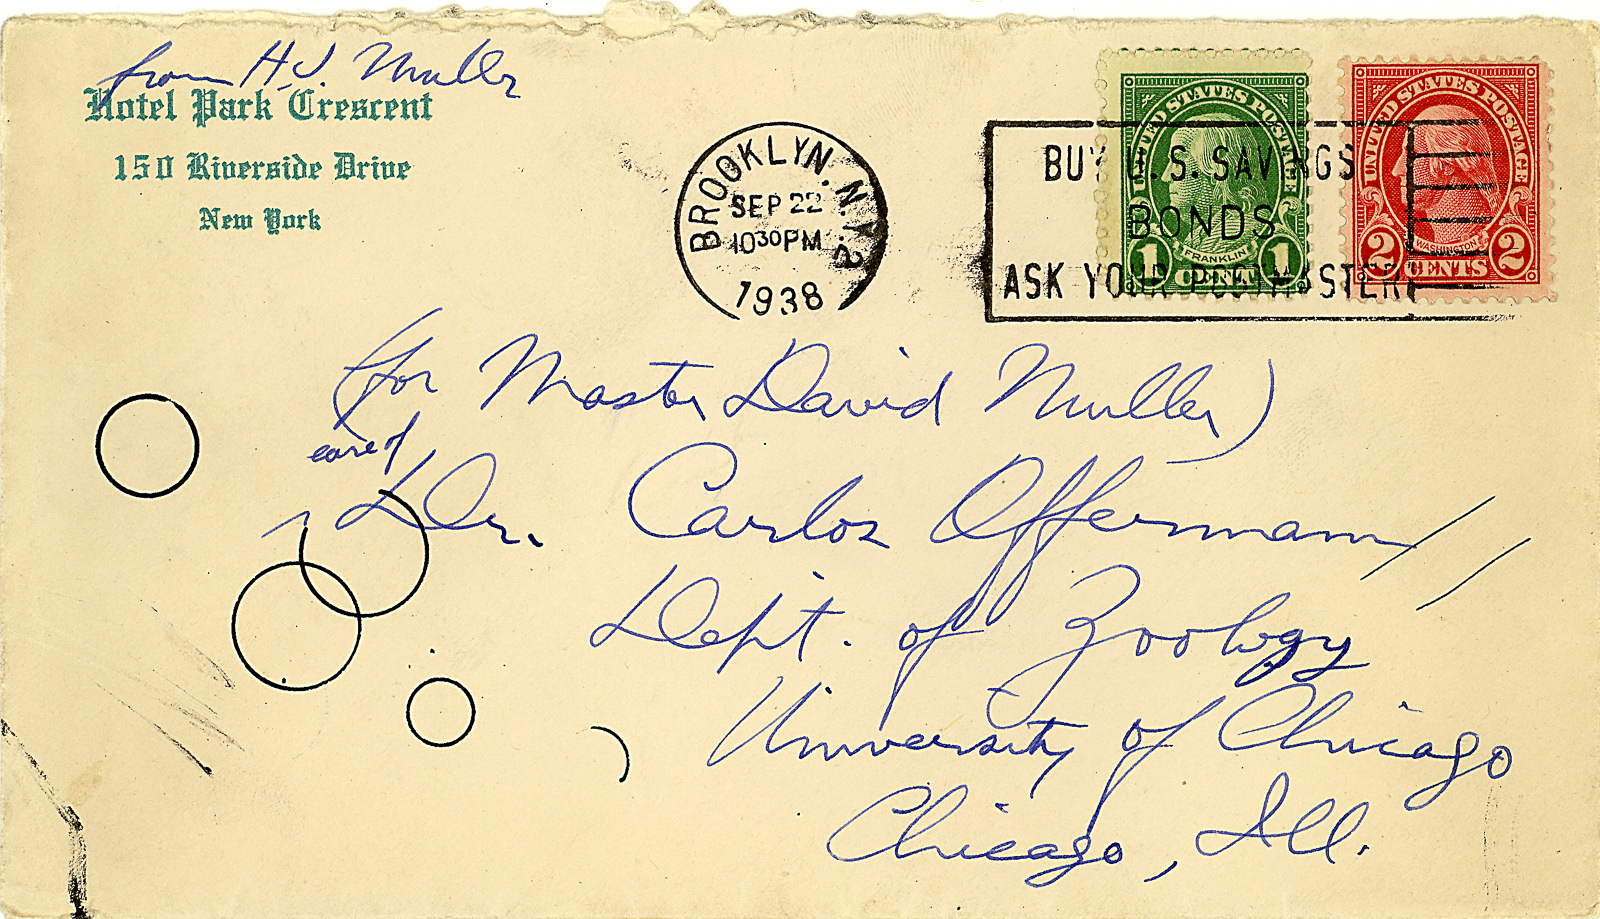 from H.J. Muller
Hotel Park Crescent
150 Riverside Drive
New York
BROOKLYN, N.Y. 2
SEP 22
10 30 PM
1938
BUY U.S. SAVINGS
BONDS
ASK YOUR POSTMASTER
UNITED STATES POSTAGE
FRANKLIN
1 CENT 1
UNITED STATES POSTAGE
WASHINGTON
2 CENTS 2
(for Master David Muller)
care of
Dr. Carlos Offermann
Dept. of Zoology
University of Chicago
Chicago, Ill.